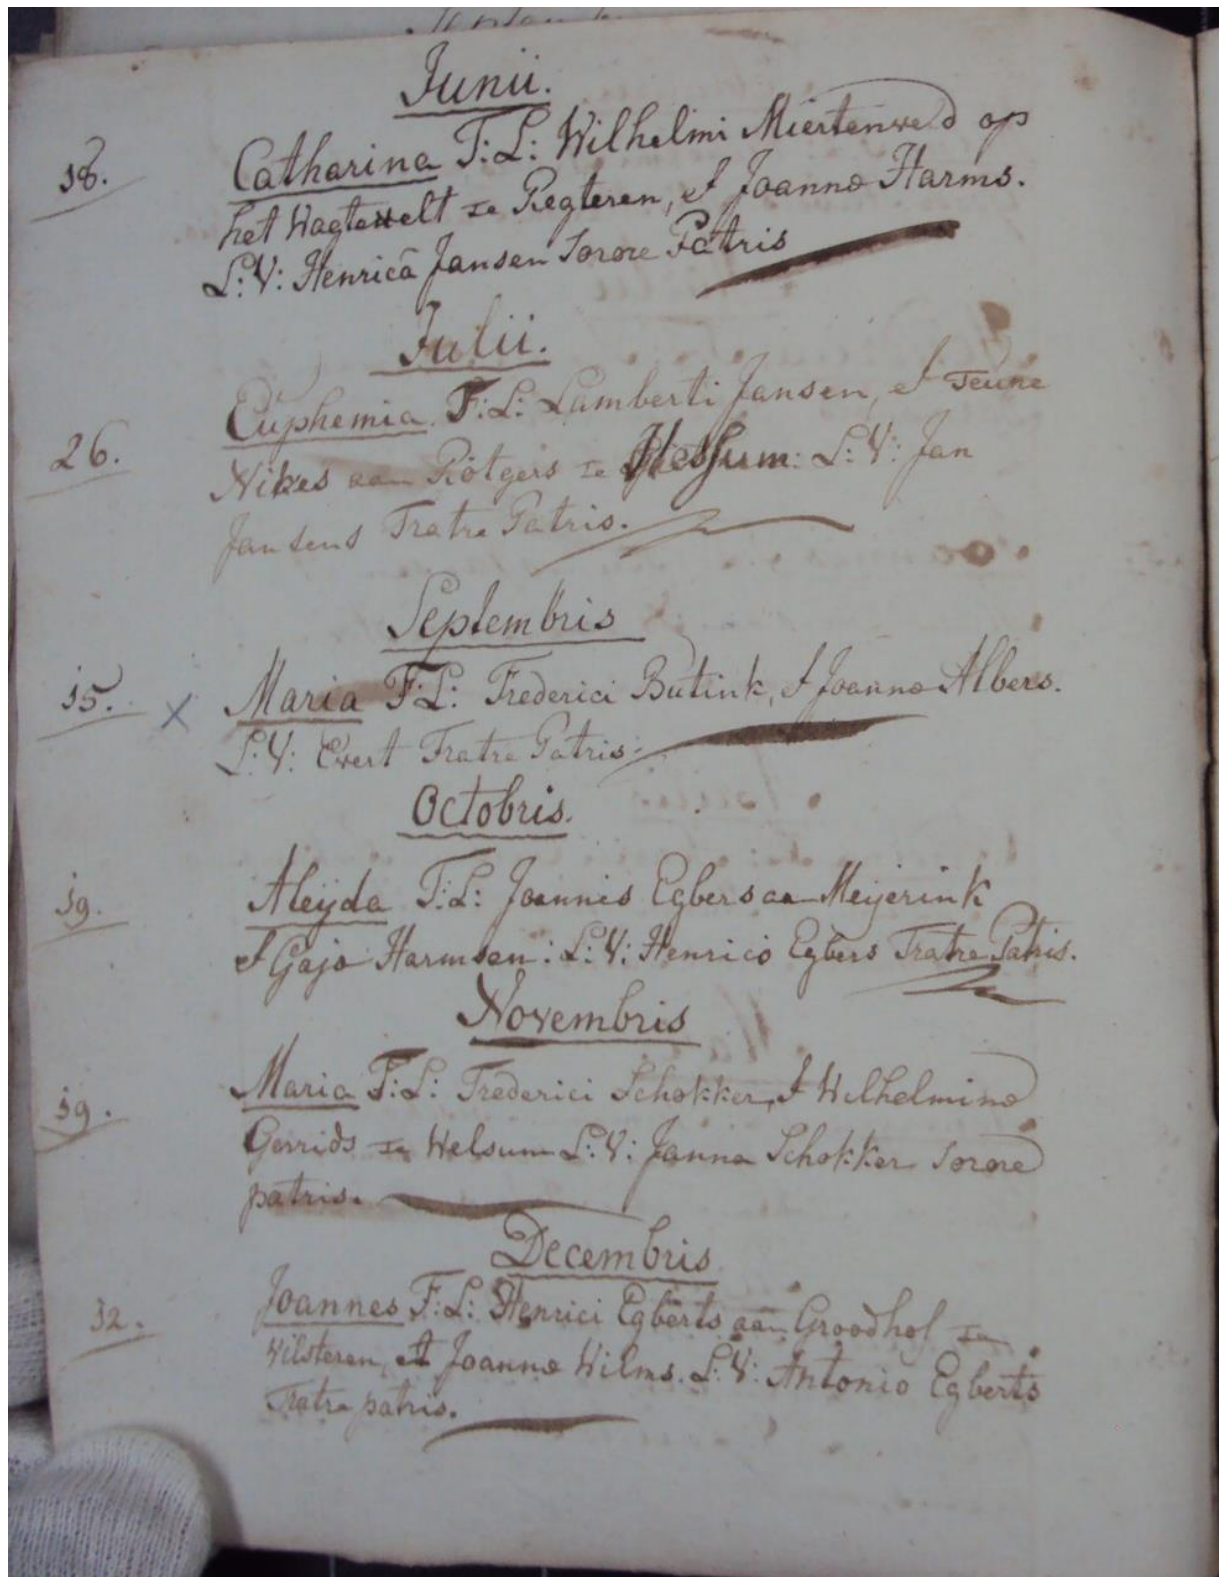 Junii.
18. Catharina F: L: Wilhelmi Miertenveld op
het Wagtevelt in Regteren, et Joanna Harms.
L: V: Henricâ Jansen Sorore Patris
Julii.
Euphemia F: L: Lamberti Jansen, et Teune
26. Nikes aan Rötgers in Hessum: L: V: Jan
Jansens Fratre Patris.
Septembris
15. X Maria F: L: Frederici Butink, et Joanna Albers.
L: V: Evert Fratre Patris.
Octobris.
19. Aleijda F: L: Joannis Egbers aan Meijerink
et Harmsen: L: V: Henrico Egbers Fratre Patris.
Novembris
19. Maria F: L: Frederici Schokker, et Wilhelmina
Gerrids in Welsum L: V: Janna Schokker Sorore
patris.
Decembris
12. Joannes F: L: Henrici Egberts aan Groodhof in
Vilsteren, et Joanna Wilms. L: V: Antonio Egberts
Fratre patris.